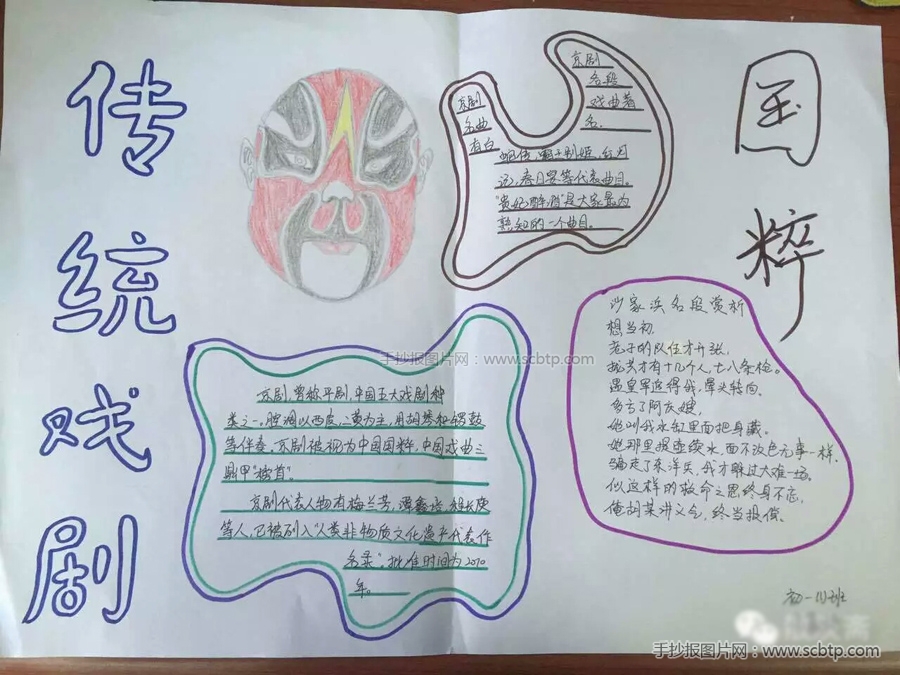 传统戏剧
国粹
京剧
名段
戏曲著
名。
京剧
名曲
有白
蛇传，霸王别姬，
等代表曲目。
"贵妃醉酒"是大家最为
熟知的一个曲目。
京剧，曾称平剧，中国五大戏曲剧种
类之一，腔调以西皮、二黄为主，用胡琴和锣鼓
等伴奏，京剧被视为中国国粹，中国戏曲三
鼎甲"榜首"。
京剧代表人物有梅兰芳，谭鑫培，程长庚
等人，已被列入"人类非物质文化遗产代表作
名录"，批准时间为2010
年。
沙家浜名段赏析
想当初，
老子的队伍才开张，
拢共才有十几个人，七八条枪。
遇皇军追得我，晕头转向。
多亏了阿庆嫂，
她叫我水缸里面把身藏。
她那里提壶续水，面不改色无事一样，
骗走了东洋兵，我才躲过大难一场。
似这样的救命之恩终身不忘，
俺胡某讲义气，终当报偿。
手抄报图片网：www.scbtp.com
手抄报图片网：www.scbtp.com